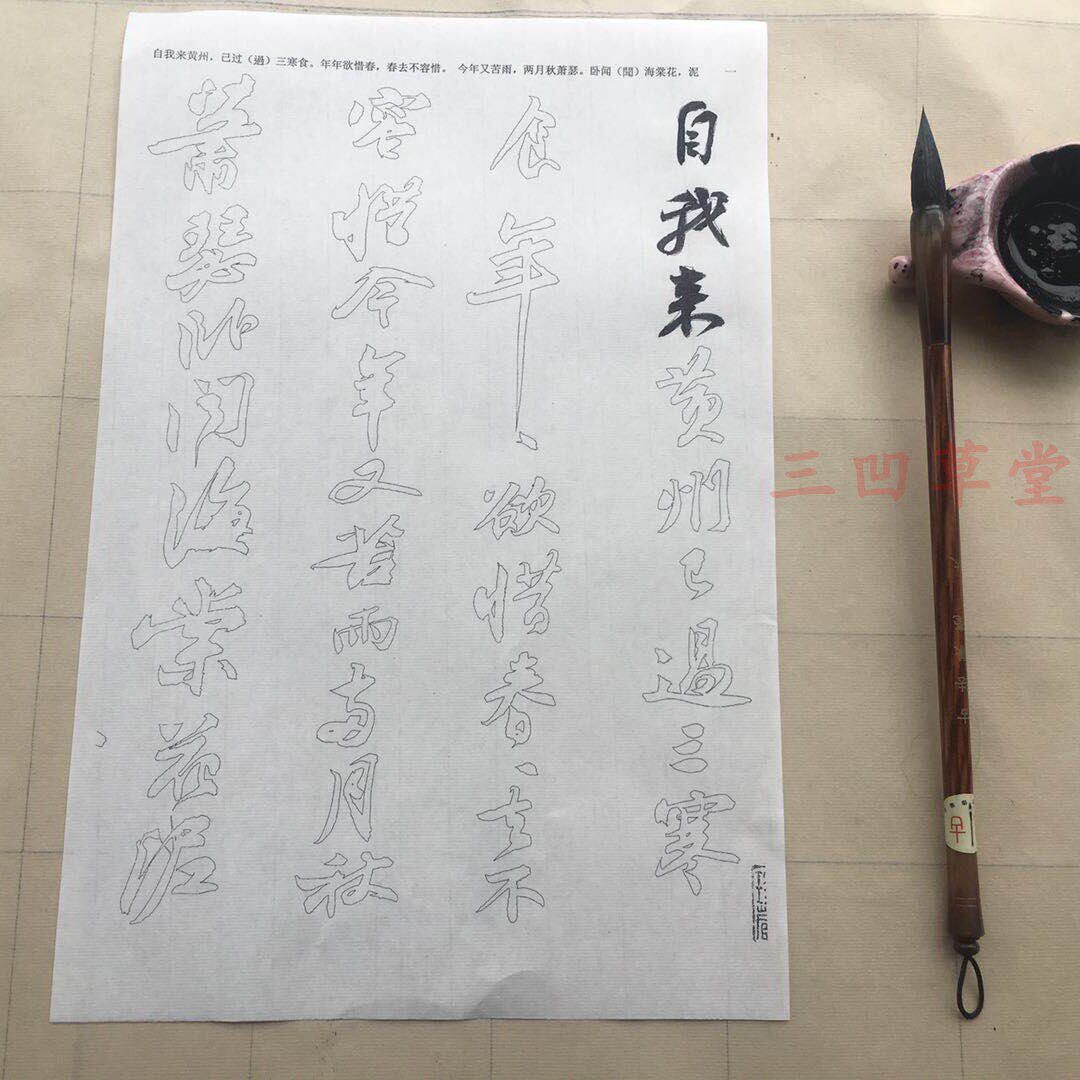 自我来黄州，已过（過）三寒食。年年欲惜春，春去不容惜。 今年又苦雨，两月秋萧瑟。卧闻（聞）海棠花，泥
一
自我来黄州已過三寒
食年、欲惜春、去不
容惜今年又苦雨两月秋
萧瑟卧闻海棠花泥
三凹草堂